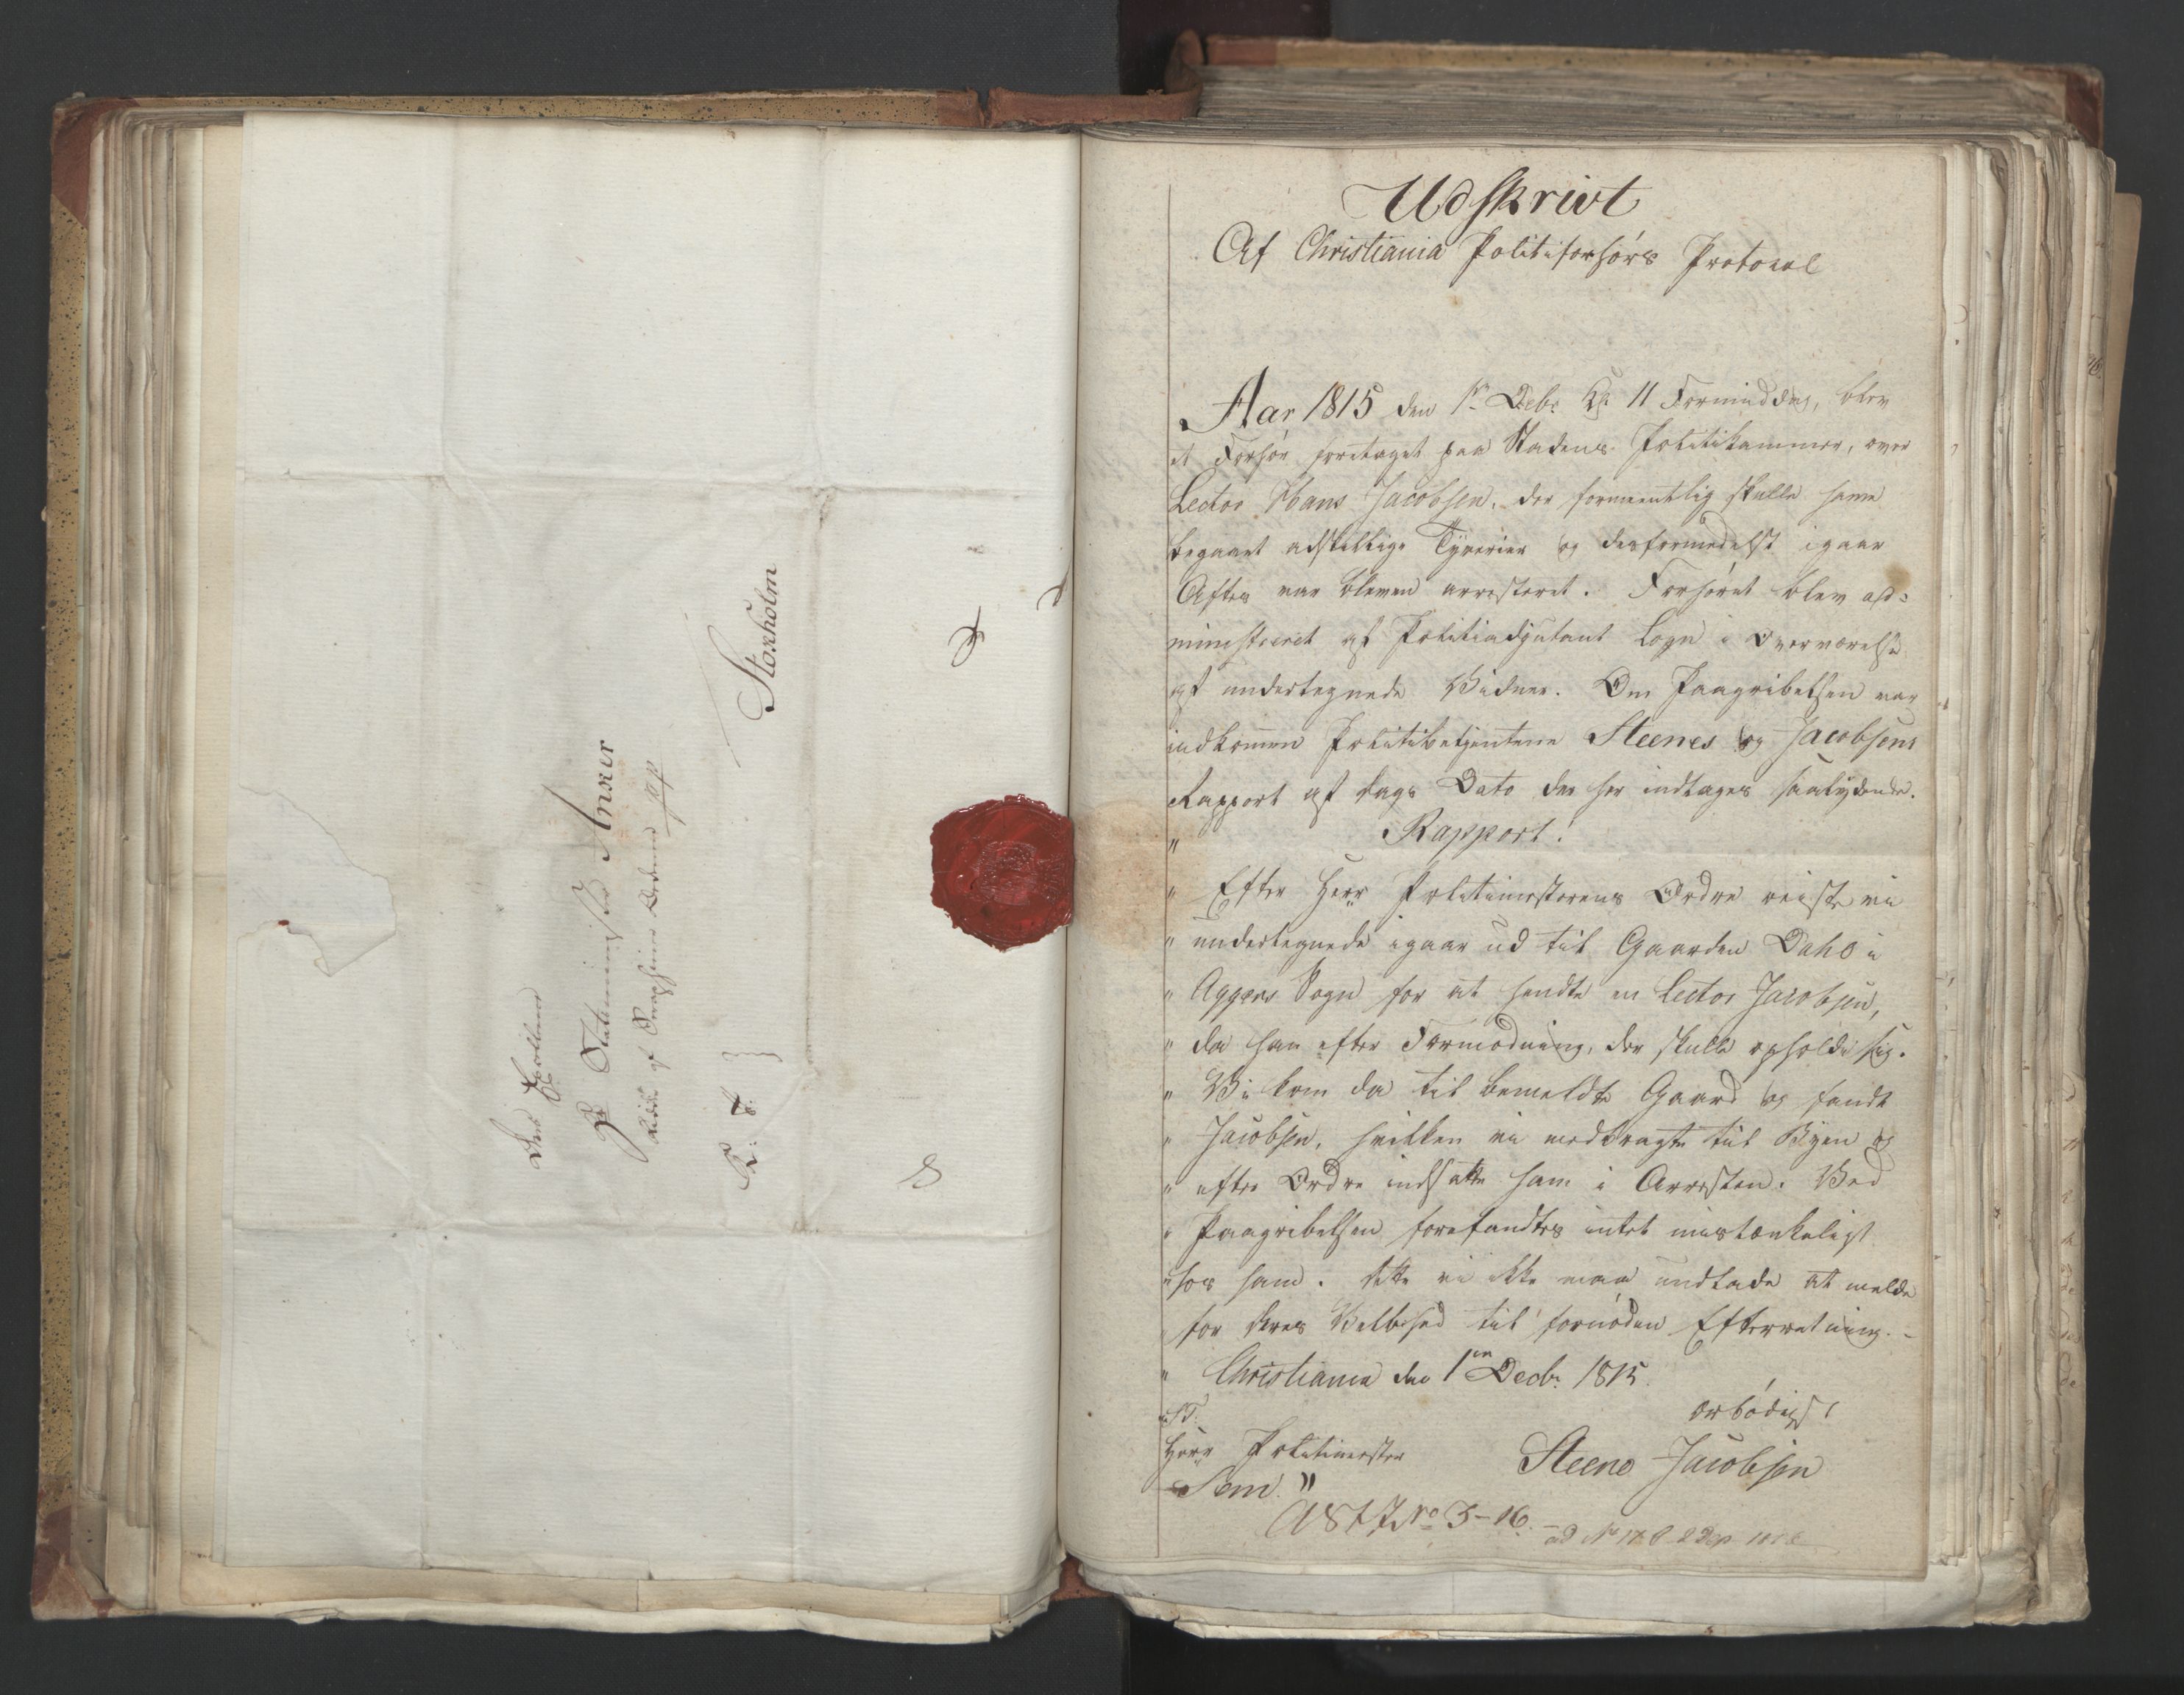 Hans Excellence
Hr Statsminister Anker
Ridder af Seraphimer Ordenen pp
Stokholm
K: T:
Udskrivt
Af Christiania Politiforhørs Protocol
Aar 1815 den 1te Decbr Kl. 11 Formiddag, blev
et Forhør foretaget paa Stadens Politikammer, over
Lector Hans Jacobsen, der formeentlig skulle have
begaaet adskillige Tyverier og desformedelst igaar
Aftes var bleven arresteret. Forhøret blev ad-
ministreret af Politiadjutant Logn i Overværelse
af undertegnede Vidner. Om Paagribelsen var
indkommen Politibetjentene Steenes og Jacobsens
Rapport af dags Dato der her indtages saalydende.
" Rapport!
" Efter Herr Politimesterens Ordre reiste vi
" undertegnede igaar ud til Gaarden Dahl i
" Aggers Sogn for at hendte en Lector Jacobsen,
" da han efter Formodning, der skulle opholde sig.
" Vi kom da til bemeldte Gaard og fandt
" Jacobsen, hvilken vi medbragte til Byen og
" efter Ordre indsatte ham i Arresten. Ved
" Paagribelsen forefandtes intet mistænkeligt
" hos ham. Dette vi ikke maa undlade at melde
" for Deres Velbhed til fornøden Efterretning.
" Christiania den 1en Decbr 1815.
" S.T. ærbødigst
Herr Politimester Steene Jacobsen
Sem. "
No 3-16. ad No